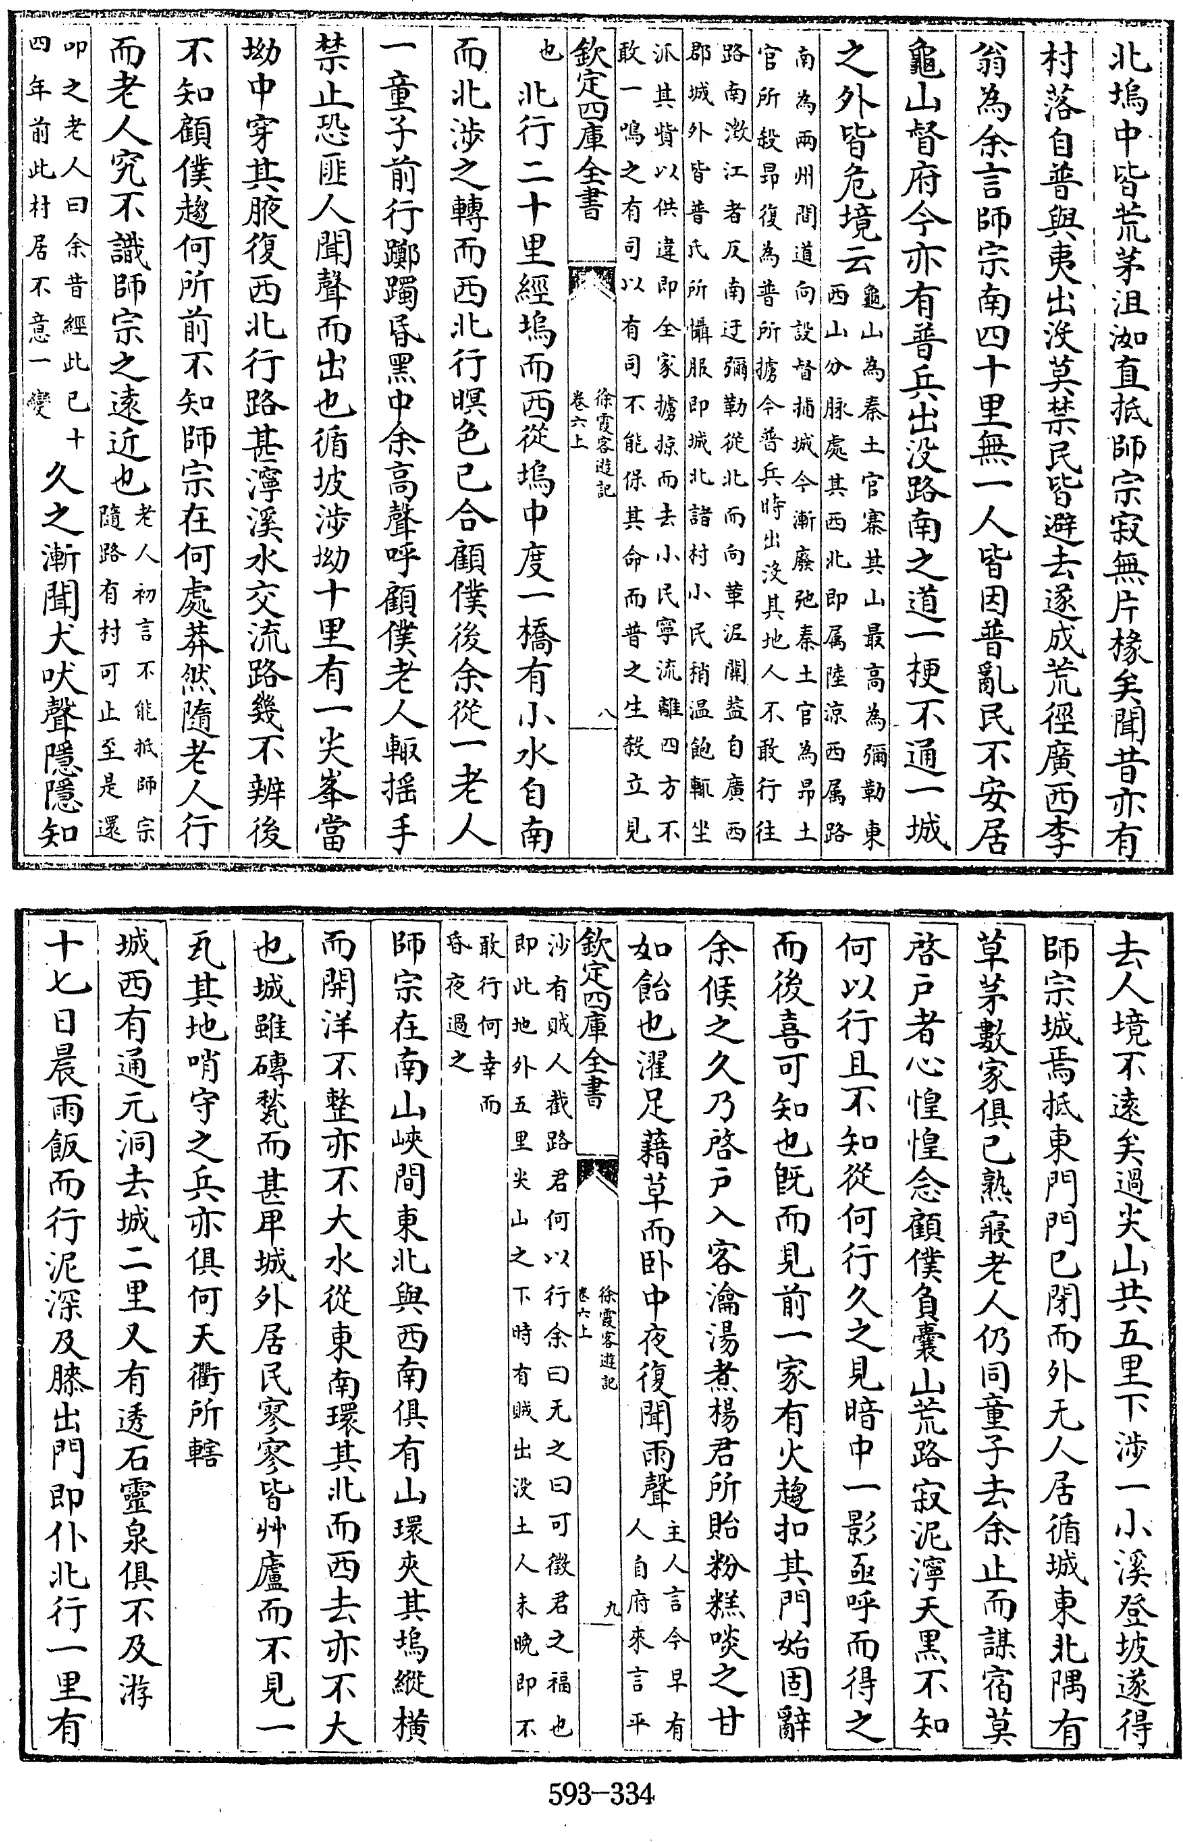 北塢中皆荒茅沮洳直抵師宗寂無片椽矣聞昔亦有
村落自普與夷出没莫禁民皆避去遂成荒徑廣西李
翁為余言師宗南四十里無一人皆因普亂民不安居
龜山督府今亦有普兵出没路南之道一梗不通一城
之外皆危境云
龜山為秦土官寨其山最高為彌勒東
西山分脉處其西北即属陸涼西属路
南為兩州間道向設督捕城今漸廢弛秦土官為昻土
官所殺昻復為普所擄今普兵時出没其地人不敢行往
路南澂江者反南迂彌勒從北而向革泥關葢自廣西
郡城外皆普氏所懾服即城北諸村小民稍温飽輒坐
派其貲以供違即全家擄掠而去小民寧流離四方不
敢一鳴之有司以有司不能保其命而普之生殺立見
欽定四庫全書
徐霞客遊記
卷六上
八
也
北行二十里經塢而西從塢中度一橋有小水自南
而北渉之轉而西北行暝色已合顧僕後余從一老人
一童子前行躑躅昏黑中余高聲呼顧僕老人輒揺手
禁止恐匪人聞聲而出也循坡渉坳十里有一尖峯當
坳中穿其腋復西北行路甚濘溪水交流路幾不辨後
不知顧僕趨何所前不知師宗在何處莽然隨老人行
而老人究不識師宗之遠近也
老人初言不能抵師宗
隨路有村可止至是還
叩之老人曰余昔經此已十
四年前此村居不意一變
久之漸聞犬吠聲隱隱知
去人境不遠矣過尖山共五里下渉一小溪登坡遂得
師宗城焉抵東門門已閉而外无人居循城東北隅有
草茅數家俱已熟寢老人仍同童子去余止而謀宿莫
啓戸者心惶惶念顧僕負囊山荒路寂泥濘天黑不知
何以行且不知從何行久之見暗中一影亟呼而得之
而後喜可知也旣而見前一家有火趨扣其門始固辭
余候之久乃啓戸入客瀹湯煮楊君所貽粉糕啖之甘
如飴也濯足藉草而卧中夜復聞雨聲
主人言今早有
人自府來言平
欽定四庫全書
徐霞客遊記
卷六上
九
沙有賊人截路君何以行余曰无之曰可徵君之福也
即此地外五里尖山之下時有賊出没土人未晚即不
敢行何幸而
昏夜過之
師宗在南山峽間東北與西南俱有山環夾其塢縱横
而開洋不整亦不大水從東南環其北而西去亦不大
也城雖磚甃而甚卑城外居民寥寥皆艸廬而不見一
瓦其地哨守之兵亦俱何天衢所轄
城西有通元洞去城二里又有透石靈泉俱不及游
十七日晨雨飯而行泥深及膝出門即仆北行一里有
593-334